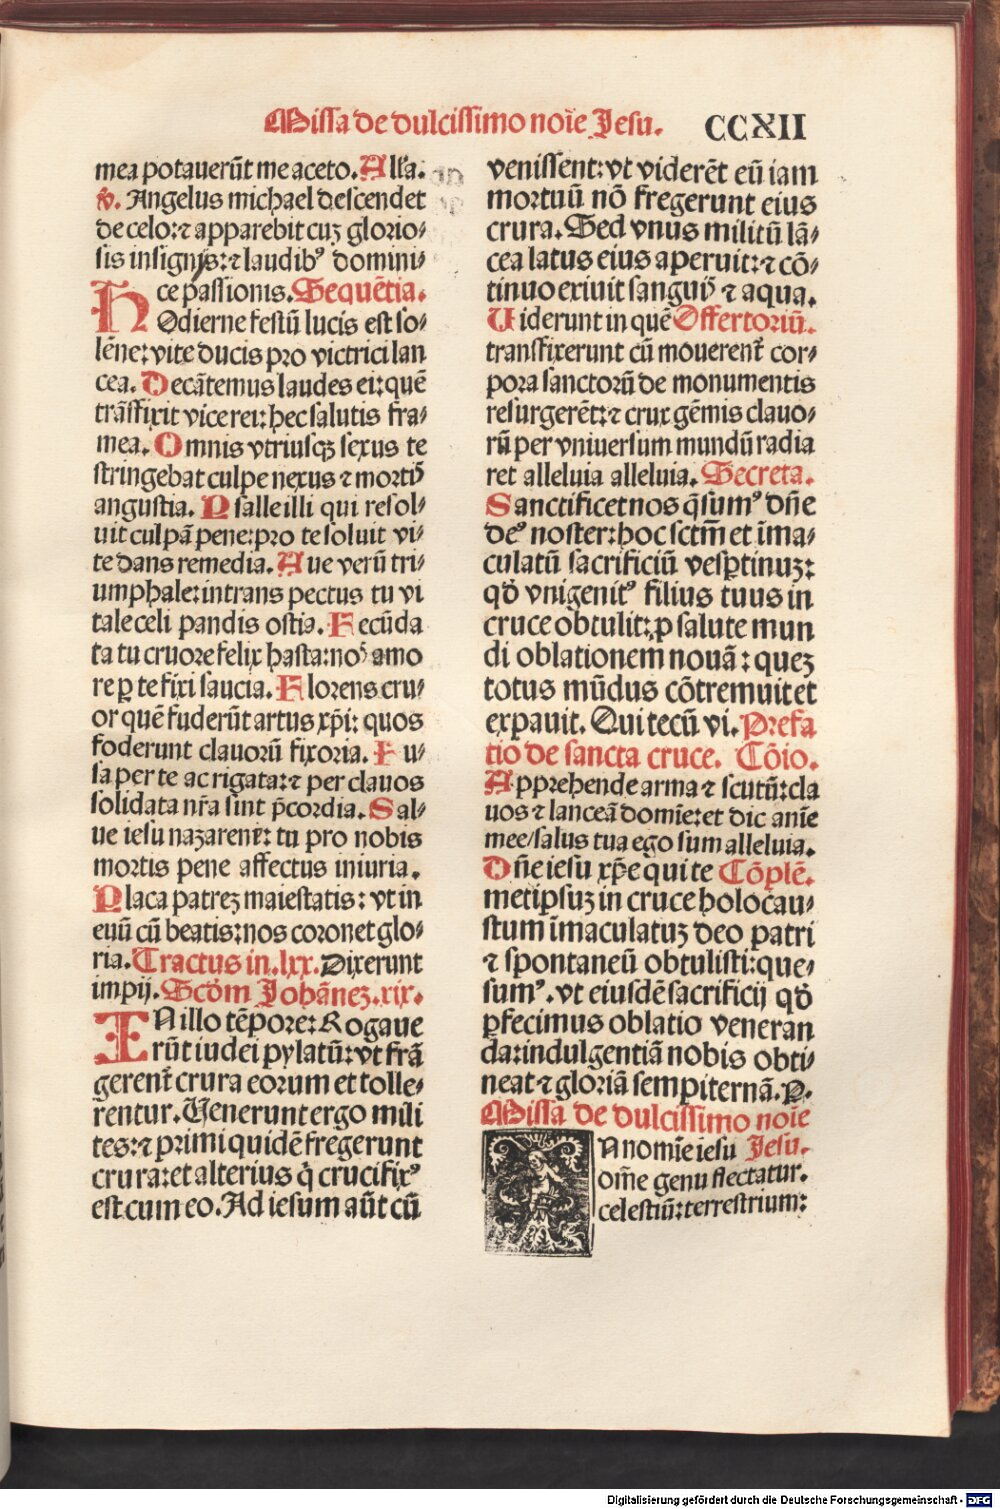 Missa de dulcissimo noīe Jesu. CCXII
mea potauerūt me aceto. Alľa.
ꝟ. Angelus michael descendet
de celo: ⁊ apparebit cuꝫ glorio⸗
sis insignijs: ⁊ laudibꝰ domini⸗
ce passionis. Sequētia.
HOdierne festū lucis est so⸗
lēne: vite ducis pro victrici lan
cea. Decātemus laudes ei: quē
trāsfixit vice rei: hec salutis fra⸗
mea. Omnis vtriusqꝫ sexus te
stringebat culpe nexus ⁊ mortꝭ
angustia. Psalle illi qui resol⸗
uit culpā pene: pro te soluit vi⸗
te dans remedia. Aue verū tri⸗
umphale: intrans pectus tu vi
tale celi pandis ostia. Fecūda
ta tu cruore felix hasta: nos amo
re ꝑ te fixi saucia. Florens cru⸗
or quē fuderūt artus xp̄i: quos
foderunt clauorū fixoria. Fu⸗
sa per te ac rigata: ⁊ per clauos
solidata nr̄a sint p̄cordia. Sal⸗
ue iesu nazarene: tu pro nobis
mortis pene affectus iniuria.
Placa patreꝫ maiestatis: vt in
euū cū beatis: nos coronet glo⸗
ria. Tractus in .lxx. Dixerunt
impij. Scḋm Johānez .xix.
IN illo tēpore: Rogaue
rūt iudei pylatū: vt frā
gerent̄ crura eorum et tolle⸗
rentur. Venerunt ergo mili
tes: ⁊ primi quidē fregerunt
crura: et alterius q̇ crucifixꝰ
est cum eo. Ad iesum aūt cū
venissent: vt viderēt eū iam
mortuū nō fregerunt eius
crura. Sed vnus militū lā⸗
cea latus eius aperuit: ⁊ cō⸗
tinuo exiuit sanguꝭ ⁊ aqua.
Viderunt in quē Offertoriū.
transfixerunt cū mouerent̄ cor⸗
pora sanctorū de monumentis
resurgerēt: ⁊ crux gēmis clauo⸗
rū per vniuersum mundū radia
ret alleluia alleluia. Secreta.
Sanctificet nos q̄sumꝰ dn̄e
deꝰ noster: hoc sctm̄ et īma⸗
culatū sacrificiū vesꝑtinuꝫ:
qḋ vnigenitꝰ filius tuus in
cruce obtulit: ꝓ salute mun
di oblationem nouā: quez
totus mūdus cōtremuit et
expauit. Qui tecū vi. Prefa
tio de sancta cruce. Cōio.
Apprehende arma ⁊ scutū: cla
uos ⁊ lanceā domīe: et dic anīe
mee/ salus tua ego sum alleluia.
Dn̄e iesu xp̄e qui te Cōplē.
metipsuꝫ in cruce holocau⸗
stum īmaculatuꝫ deo patri
⁊ spontaneū obtulisti: que⸗
sumꝰ. vt eiusdē sacrificij qḋ
ꝑfecimus oblatio veneran
da: indulgentiā nobis obti⸗
neat ⁊ gloriā sempiternā. P.
Missa de dulcissimo noīe
N nomīe iesu Jesu.
om̄e genu flectatur.
celestiū: terrestrium:
Digitalisierung gefördert durch die Deutsche Forschungsgemeinschaft - DFG